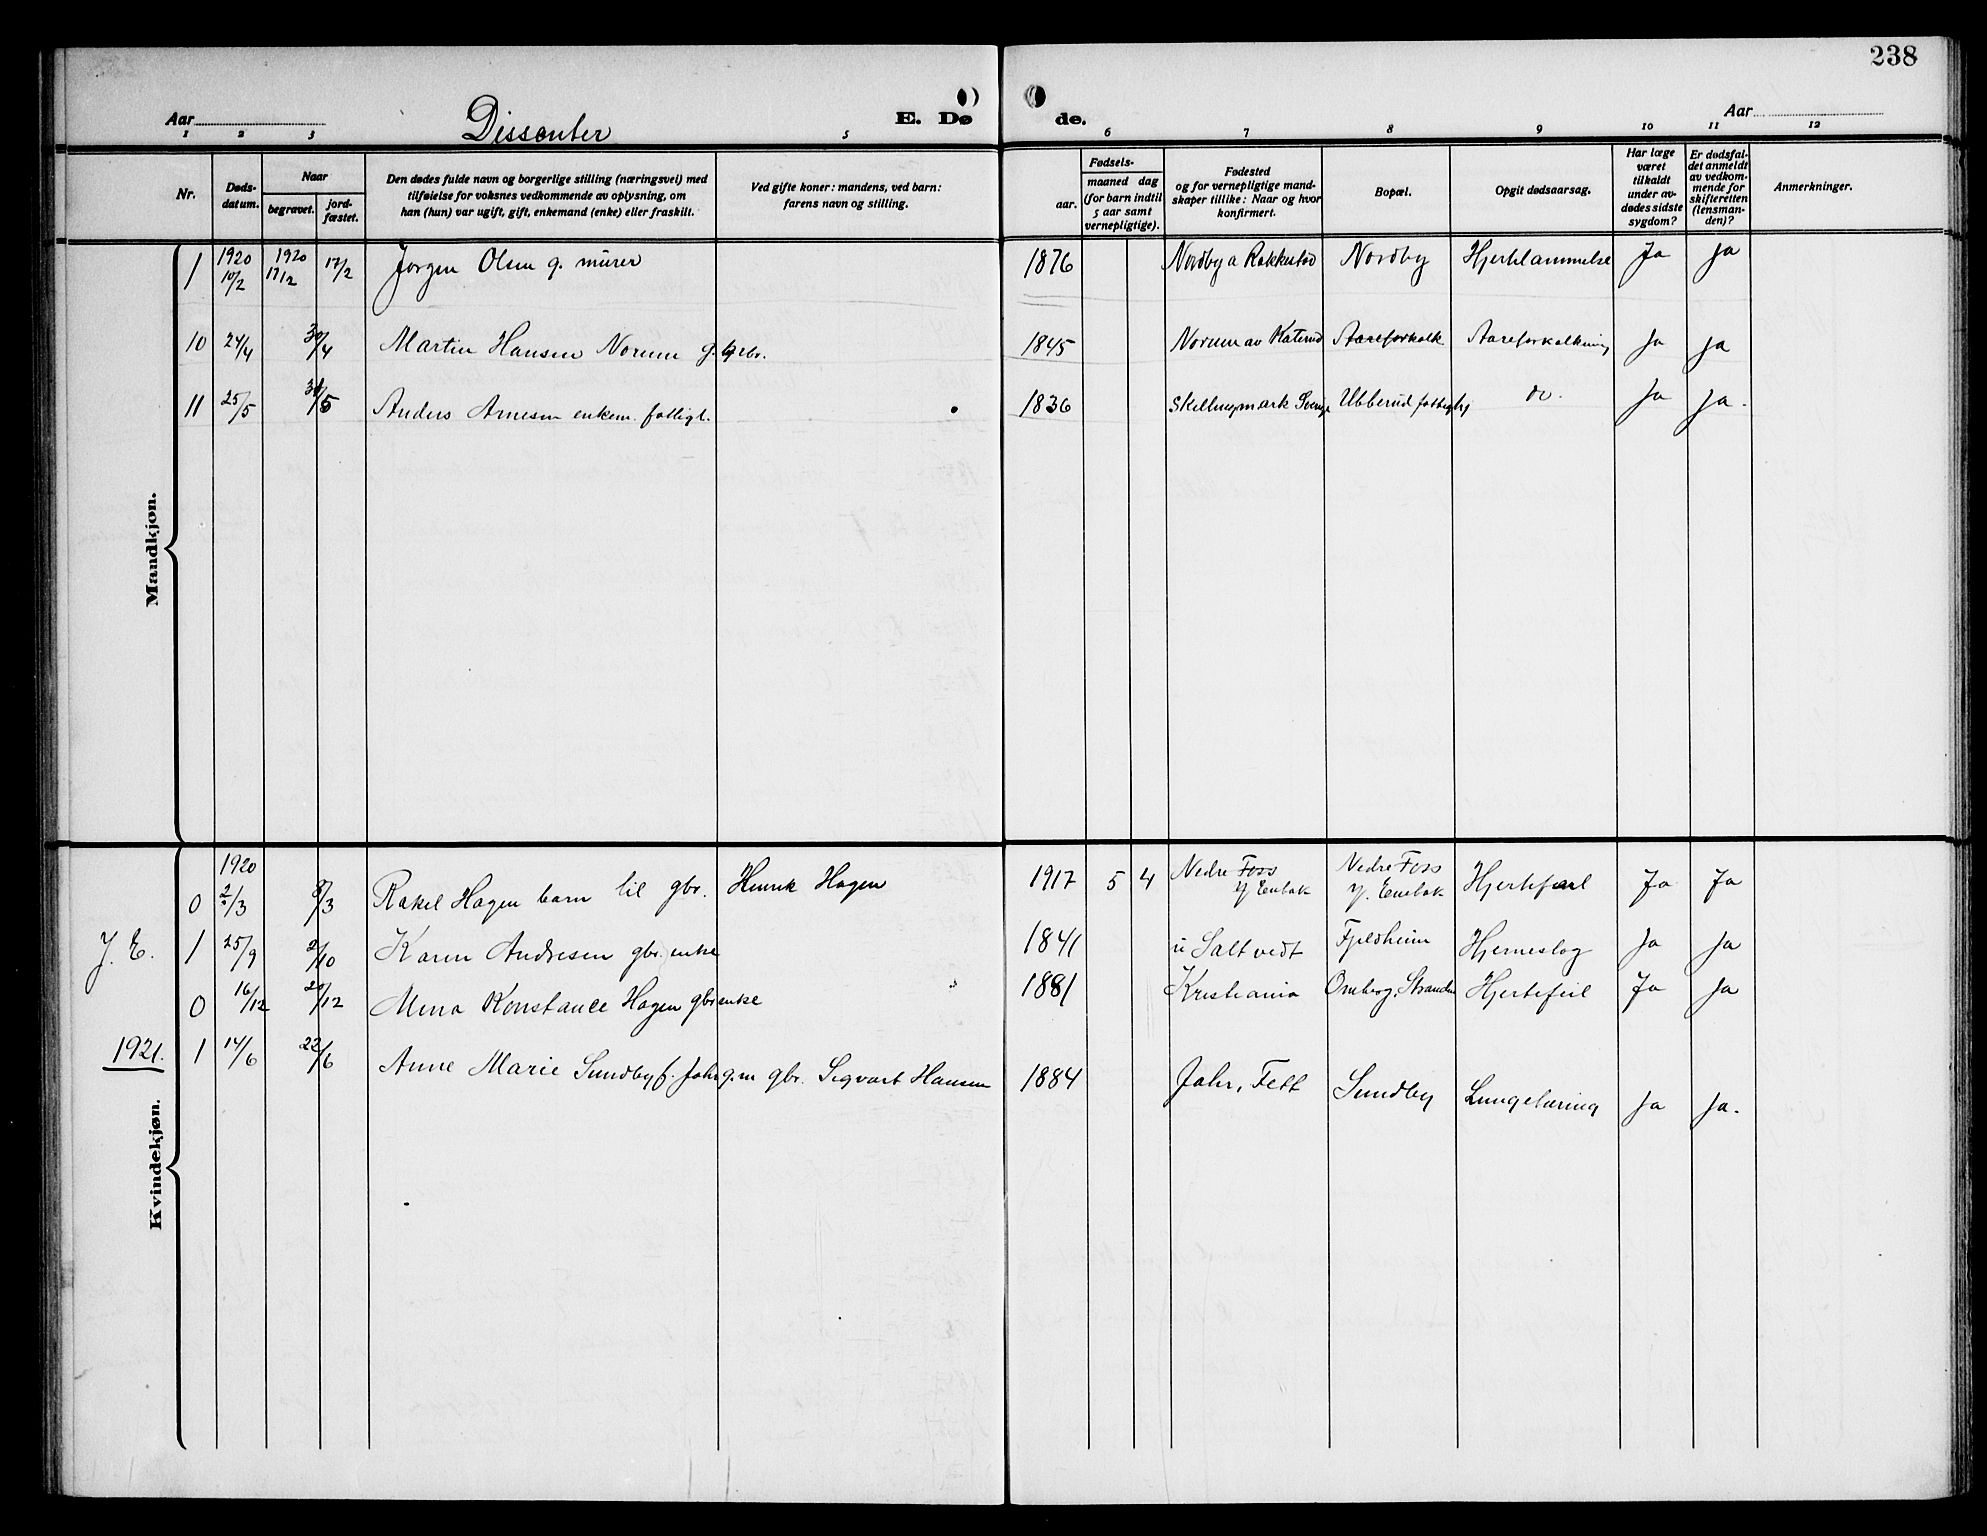 238
Aar
Dissenter
E. Dø
de.
Aar
1 2 3 5 6 7 8 9 10 11 12
Nr.
Døds-
datum.
Naar
begravet.
jord-
fæstet.
Den dødes fulde navn og borgerlige stilling (næringsvei) med
tilføielse for voksnes vedkommende av oplysning, om
han (hun) var ugift, gift, enkemand (enke) eller fraskilt.
Ved gifte koner: mandens, ved barn:
farens navn og stilling.
Fødsels-
aar.
maaned dag
(for barn indtil
5 aar samt
vernepligtige).
Fødested
og for vernepligtige mand-
skaper tillike: Naar og hvor
konfirmert.
Bopæl.
Opgit dødsaarsag.
Har læge
været
tilkaldt
under av-
dødes sidste
sygdom?
Er dødsfal-
det anmeldt
av vedkom-
mende for
skifteretten
(lensman-
den)?
Anmerkninger.
Mandkjøn.
1 1920 10/2 1920 17/2 17/2 Jørgen Olsen g. murer 1876 Nordby a Rakkestad Nordby Hjertelammelse Ja Ja
10 24/4 30/4 Martin Hansen Norum g. gbr. 1845 Norum av Aareforkalk Aareforkalkning Ja Ja
11 25/5 /5 Anders Arnesen enkem. fattigl. 1836 Skillingmark Sverige Ubberud fattiglg do. Ja Ja.
Kvindekjøn.
0 1920 2/3 8/3 Rakel Hagen barn til gbr. Henrik Hagen 1917 5 4 Nedre Foss Y Enebak Nedre Foss Y. Enebak Hjertefeil Ja Ja
Y. E. 1 25/9 2/10 Karen Andresen gbr. enke 1841 Saltvedt Fjeldheim Hjerneslag Ja Ja
0 16/12 20/12 Mina Konstance Hagen gbrenke 1881 Kristiania Omberg, Stranden Hjertefeil Ja Ja
1921. 1 14/6 22/6 Anne Marie Sundby f. Jahr g.m gbr. Sigvart Hansen 1884 Jahr, Fett Sundby Lungetæring Ja Ja.